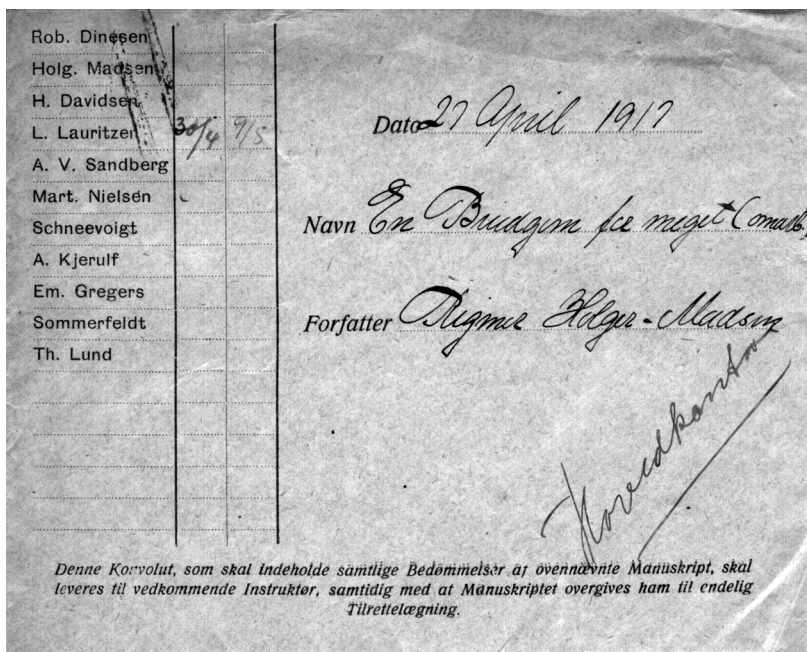 Rob. Dinesen
Holg. Madsen
H. Davidsen
L. Lauritzen 30/4 9/5
A. V. Sandberg
Mart. Nielsen
Schneevoigt
A. Kjerulf
Em. Gregers
Sommerfeldt
Th. Lund
Dato 27 April 1917
Navn En Brudgom for meget (omarb.
Forfatter Rigmor Holger-Madsen
Hovedkontor
Denne Korvolut, som skal indeholde samtlige Bedømmelser af ovennævnte Manuskript, skal
leveres til vedkommende Instruktør, samtidig med at Manuskriptet overgives ham til endelig
Tilrettelægning.